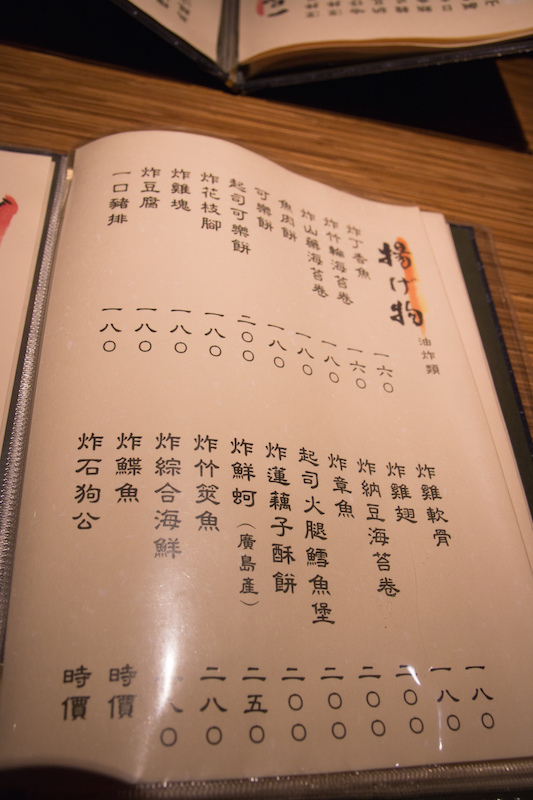 揚げ物
油炸類
炸丁香魚 一六〇
炸竹輪海苔卷 一六〇
炸山藥海苔卷 一八〇
魚肉餅 一八〇
可樂餅 一八〇
起司可樂餅 二〇〇
炸花枝腳 一八〇
炸雞塊 一八〇
炸豆腐 一八〇
一口豬排 一八〇
炸雞軟骨 一八〇
炸雞翅 一八〇
炸納豆海苔卷 二〇〇
炸章魚 二〇〇
起司火腿鱈魚堡 二〇〇
炸蓮藕子酥餅 二〇〇
炸鮮蚵（廣島產） 二五〇
炸竹筴魚 二八〇
炸綜合海鮮
炸鰈魚 時價
炸石狗公 時價